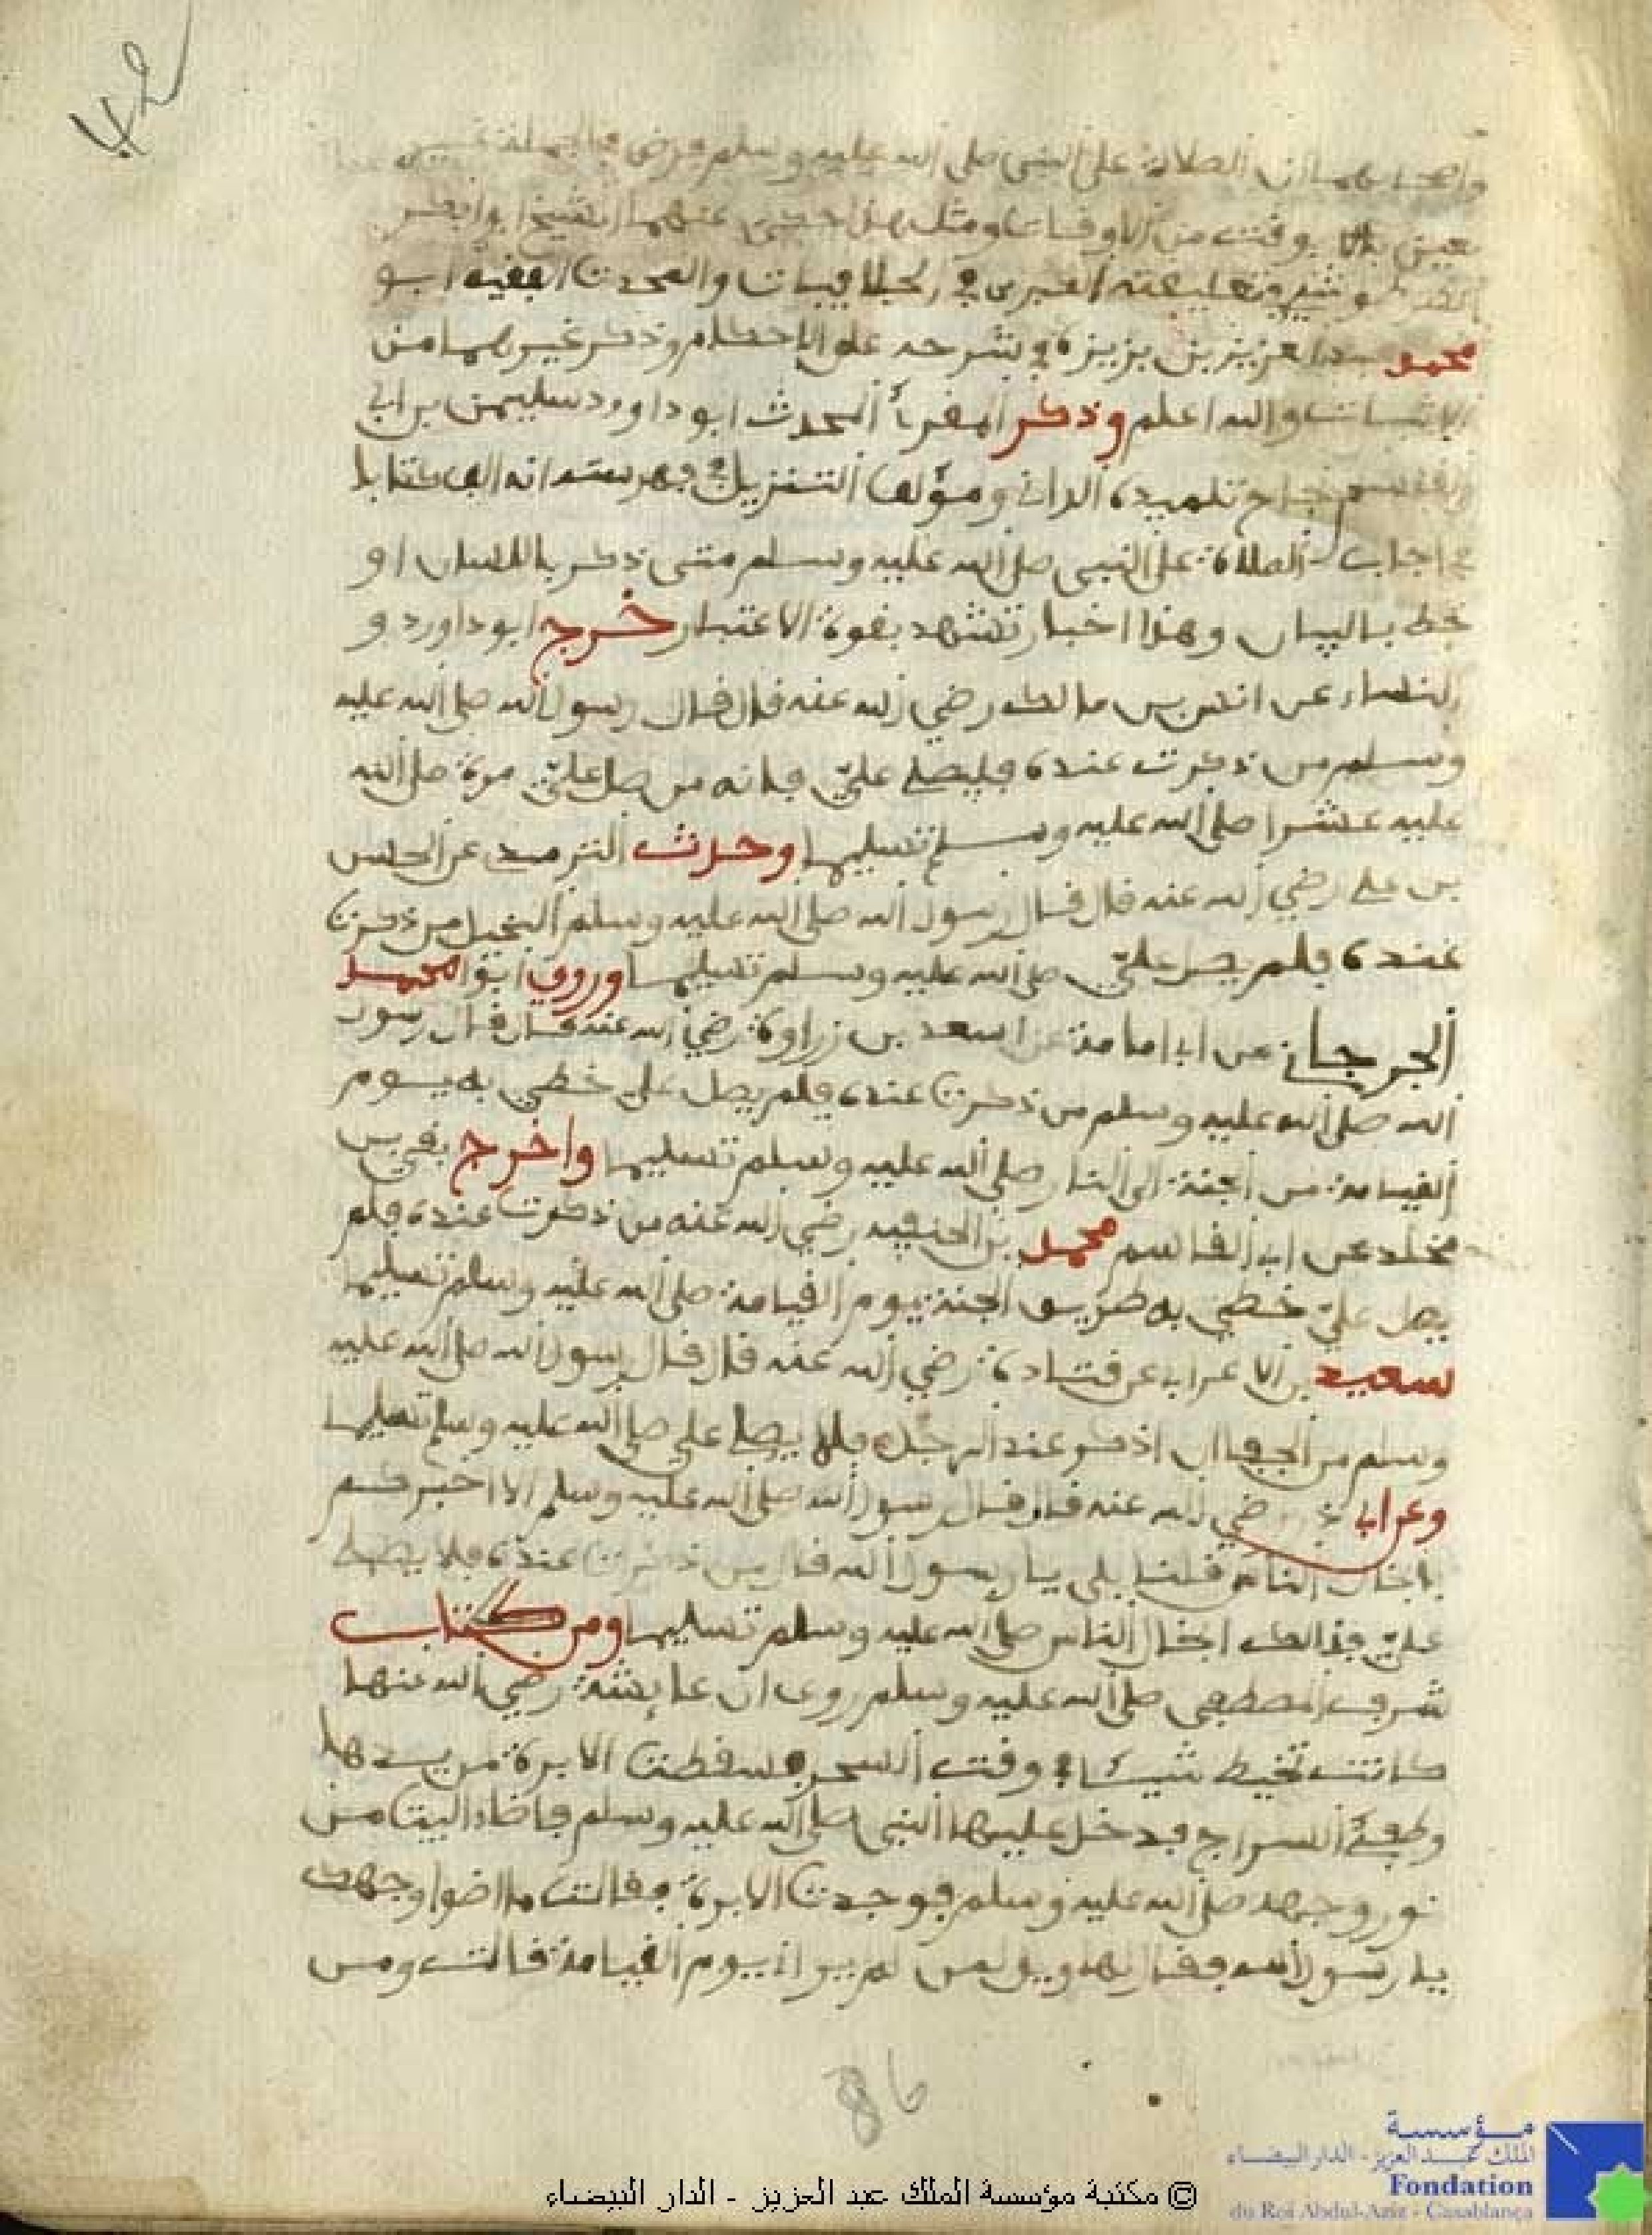 42
واصحابهما ان الصلاة على النبي صلى الله عليه وسلم فرض في الجملة
بوقت من الاوقات ومثل هذا حكى عنهما الشيخ ابوا بكر
الطرطوشي في تعليقته الكبرى في الخلافيات والمحدث الفقيه ابو
محمد عبد العزيز بن بزيزة في شرحه على الاحكام وذكر غيرهما من
الاثبات والله اعلم وذكر المقرئ المحدث ابو داوود سليمن بن ابي
القاسم نجاح تلميذ الداني ومؤلف التنزيل في فهرسته انه الف كتابا
في اجاب الصلاة على النبي صلى الله عليه وسلم متى ذكر باللسان او
خط بالبيان وهذا اخبار تشهد بقوة الاعتبار خرج ابو داورد و
النساء عن انس بن مالك رضي الله عنه قال قال رسول الله صلى الله عليه
وسلم من ذكرت عنده فليصلي علي فانه من صل علي مرة صلى الله
عليه عشرا صلى الله عليه وسلم تسليما وحدث الترمدي عن الحسن
بن علي رضي الله عنه قال قال رسول الله صلى الله عليه وسلم البخيل من ذكرت
عنده فلم يصل علي صلى الله عليه وسلم تسليما وروى ابوا محمد
الجرجاني عن ابي امامة عن اسعد بن زراوة رضي الله عنه قال قال رسول
الله صلى الله عليه وسلم من ذكرت عنده فلم يصل علي خطي به يوم
القيامة من الجنة الى النار صلى الله عليه وسلم تسليما واخرج بقي بن
مخلد عن ابي القاسم محمد بن الحنفيه رضي الله عنه من ذكرت عنده فلم
يصل علي خطي به طريق الجنة يوم القيامة صلى الله عليه وسلم تسليما
سعيد بن الاعرابي عن قتادة رضي الله عنه قال قال رسول الله صلى الله عليه
وسلم من الجفا ان اذكر عند الرجل فلا يصلي علي صلى الله عليه وسلم تسليما
وعن ابي ذر رضي الله عنه قال قال رسول الله صلى الله عليه وسلم الا اخبركم
بابخل الناس قلنا بلى يا رسول الله قال من ذكرت عنده فلا يصل
علي فذالك ابخل الناس صلى الله عليه وسلم تسليما ومن كتاب
شرف المصطفى صلى الله عليه وسلم روى ان عايشة رضي الله عنها
كانت تخيط شيئا في وقت السحر فسقطت الابرة من يدها
وطفئ السراج فدخل عليها النبي صلى الله عليه وسلم فاضاء البيت من
نور وجهه صلى الله عليه وسلم فوجدت الابرة فقالت ما اضوا وجهك
يا رسول الله فقال لها ويل لمن لم يراني يوم القيامة قالت ومن
86
مؤسسة
الملك عبد العزيز - الدار البيضاء
Fondation
du Roi Abdul-Aziz - Casablanca
© مكتبة مؤسسة الملك عبد العزيز - الدار البيضاء